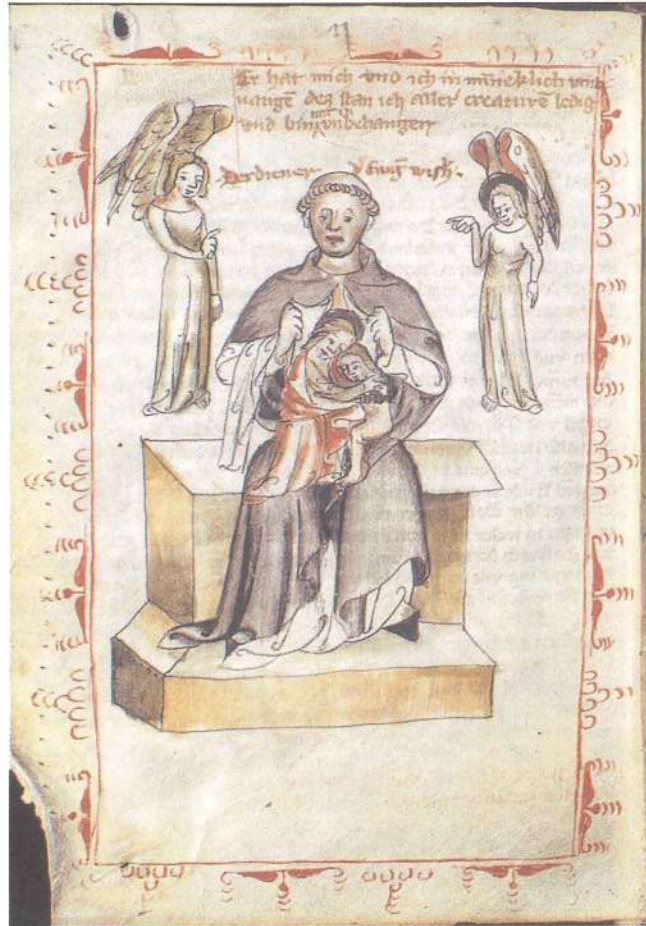 Er hat mich vnd ich in minneklich vmb
uangē des stan ich aller creaturē ledig
vnd bin mit in vnbehangen
Der diener d' Ewigē wish'.